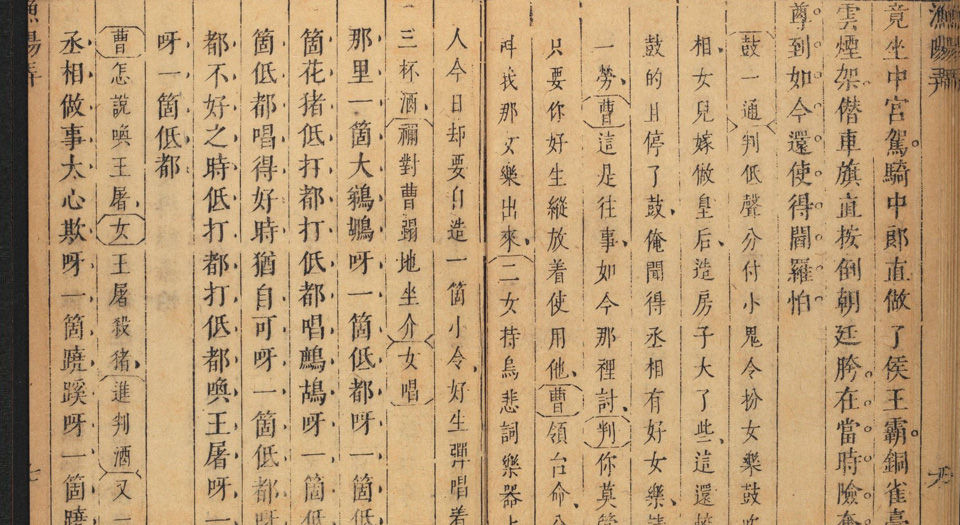 漁陽弄
竟坐中宮駕騎中郎直做了侯王霸銅雀臺
雲煙架僭車旗直按倒朝廷胯在當時險奪
尊到如今還使得閻羅怕
鼓一通判低聲分付小鬼令扮女樂鼓吹
相女兒嫁做皇后造房子大了些這還較
鼓的且停了鼓俺聞得丞相有好女樂請
一勞曹這是往事如今那裡討判你莫管
只要你好生縱放着使用他曹領台命分
呌我那女樂出來二女持烏悲詞樂器上
人今日却要自造一箇小令好生彈唱着
三杯酒禰對曹蹋地坐介女唱
那里一箇大鵜鶘呀一箇低都呀一箇
箇花猪低打都打低都唱鷓鴣呀一箇低
箇低都唱得好時猶自可呀一箇低都呀
都不好之時低打都打低都喚王屠呀
呀一箇低都
曹怎說喚王屠女王屠殺猪進判酒又一
丞相做事太心欺呀一箇蹺蹊呀一箇蹺
漁陽弄
七